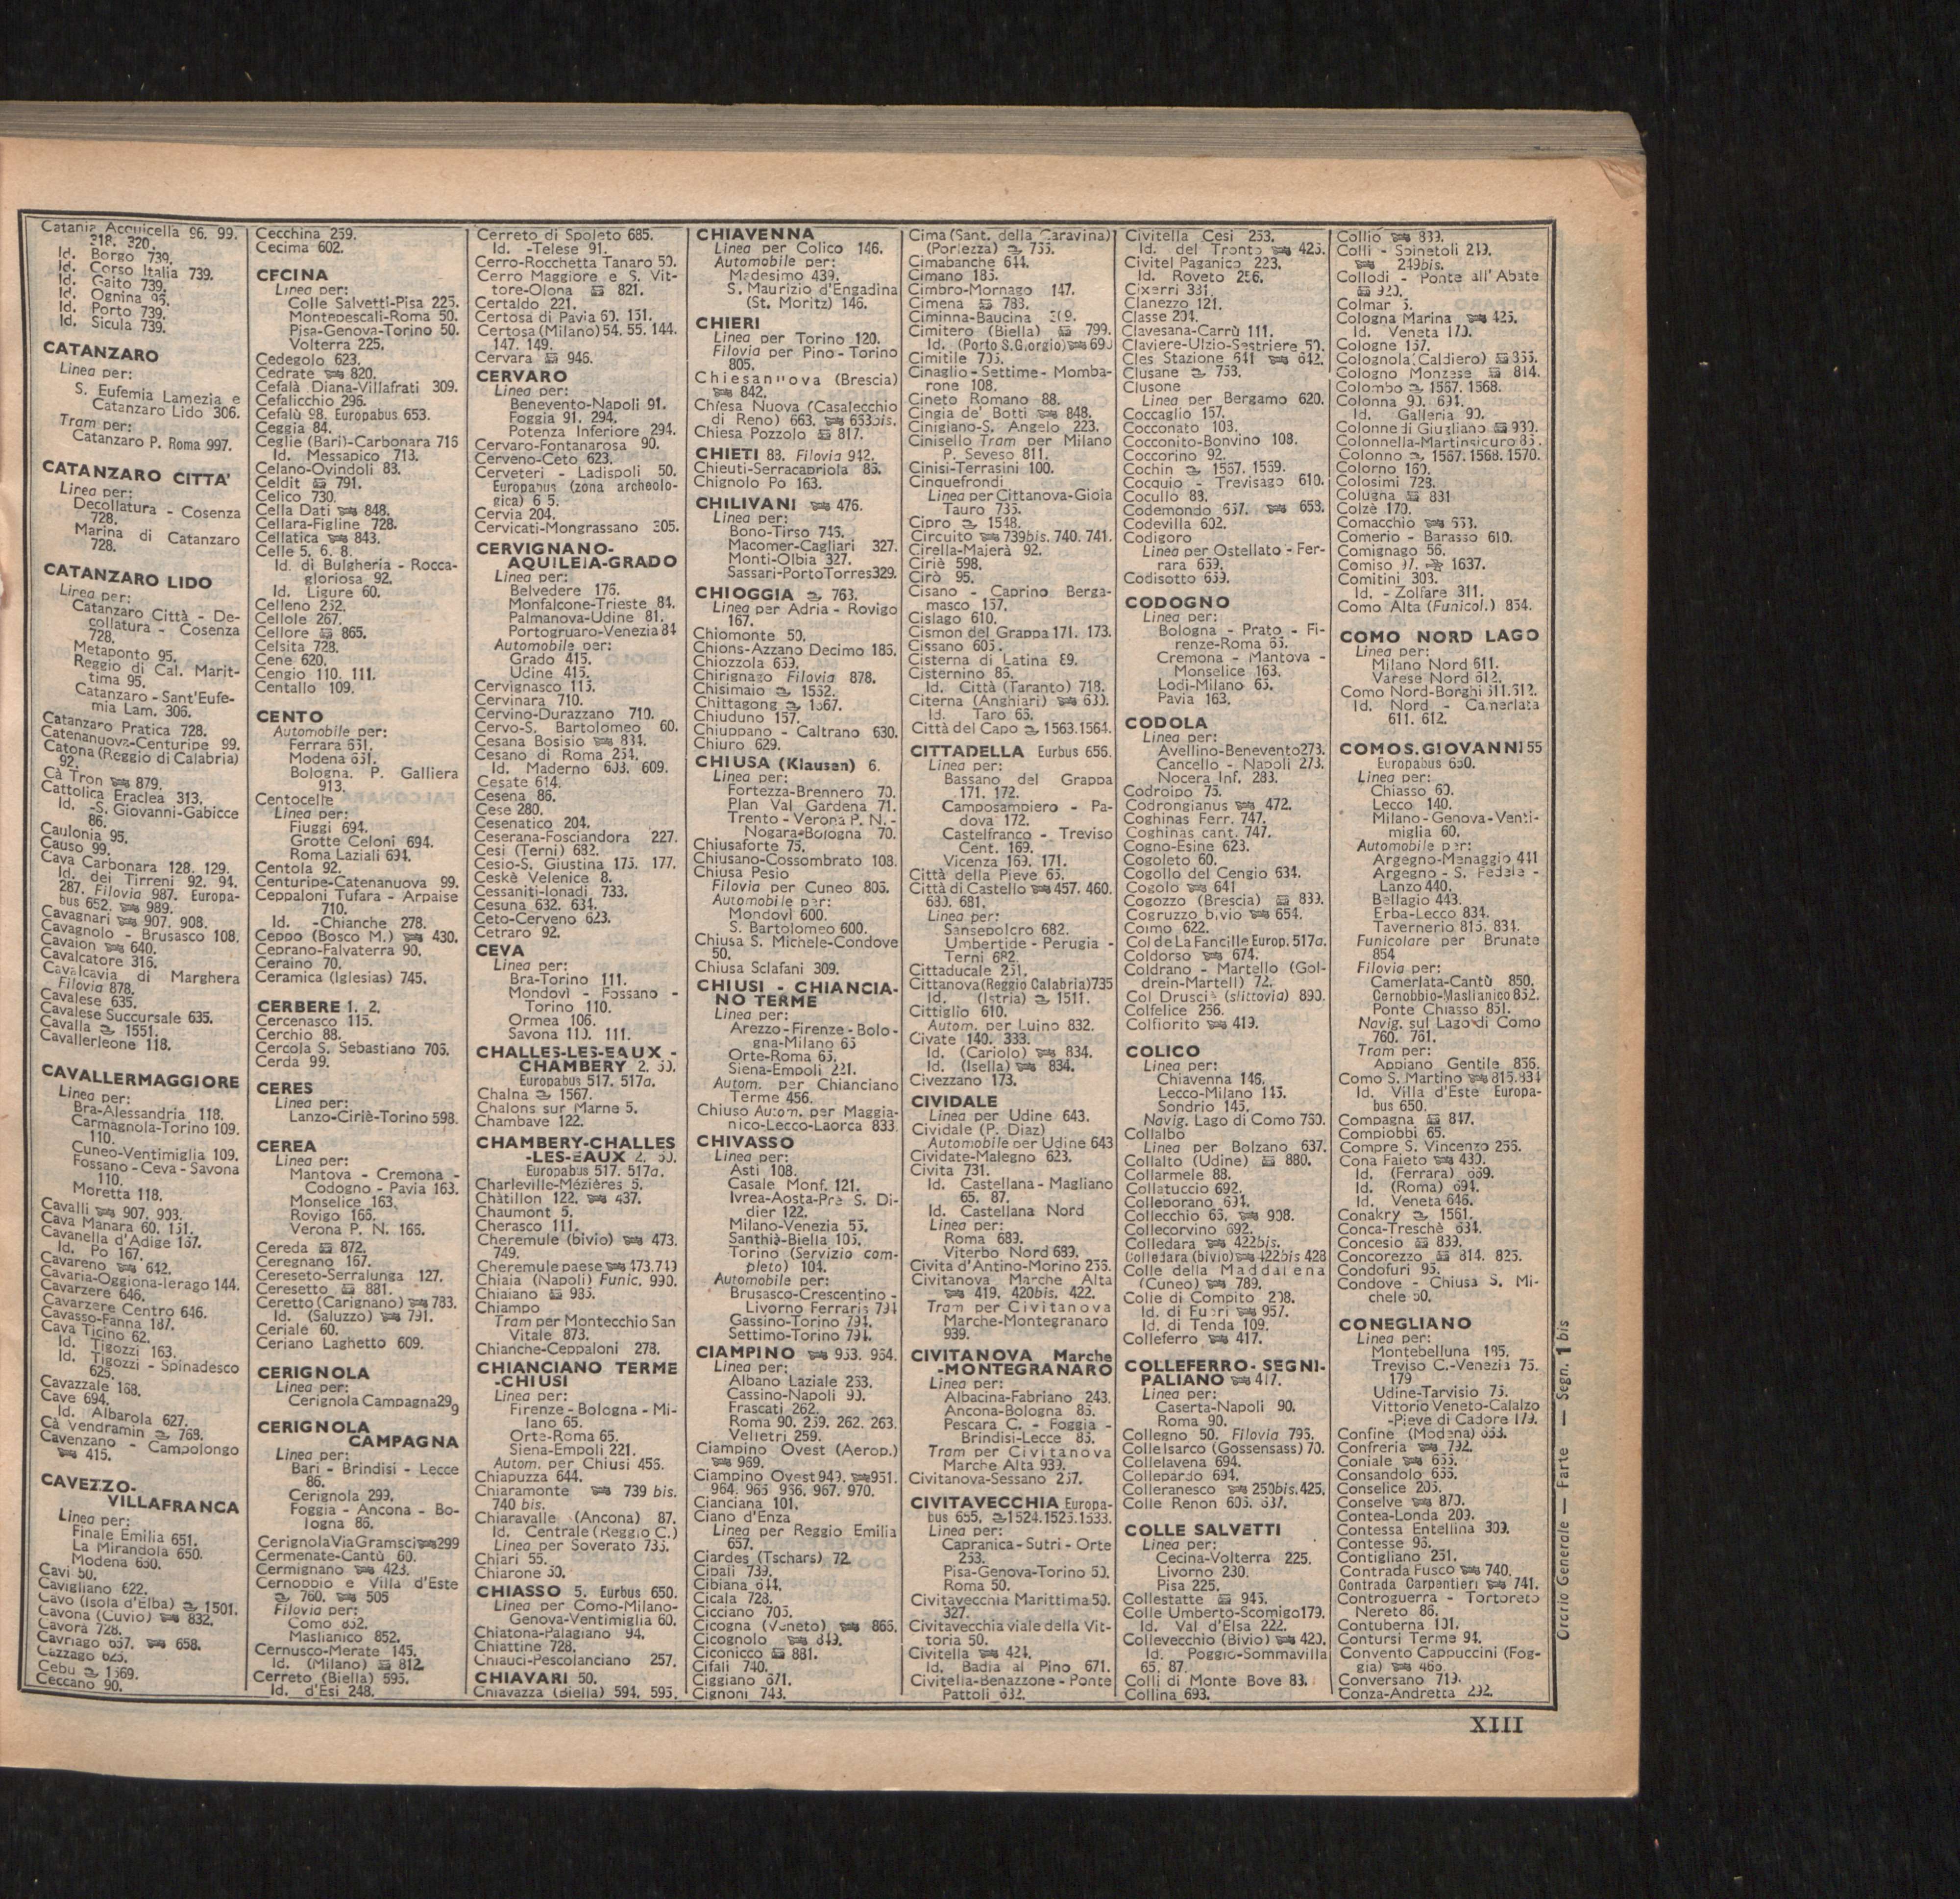 Catania Acquicella 96. 99.
318. 320.
Id. Borgo 739.
Id. Corso Italia 739.
Id. Gaito 739.
Id. Ognina 95.
Id. Porto 739.
Id. Sicula 739.
CATANZARO
Linea per:
S. Eufemia Lamezia e
Catanzaro Lido 306.
Tram per:
Catanzaro P. Roma 997.
CATANZARO CITTA'
Linea per:
Decollatura - Cosenza
728.
Marina di Catanzaro
728.
CATANZARO LIDO
Linea per:
Catanzaro Città - De-
collatura - Cosenza
728.
Metaponto 95.
Reggio di Cal. Marit-
tima 95.
Catanzaro - Sant'Eufe-
mia Lam. 306.
Catanzaro Pratica 728.
Catenanuova-Centuripe 99.
Catona (Reggio di Calabria)
92.
Cà Tron 879.
Cattolica Eraclea 313.
Id. -S. Giovanni-Gabicce
86.
Caulonia 95.
Causo 99.
Cava Carbonara 128. 129.
Id. dei Tirreni 92. 94.
287. Filovia 987. Europa-
bus 652. 989.
Cavagnari 907. 908.
Cavagnolo - Brusasco 108.
Cavaion 640.
Cavalcatore 316.
Cavalcavia di Marghera
Filovia 878.
Cavalese 635.
Cavalese Succursale 635.
Cavalla 1551.
Cavallerleone 118.
CAVALLERMAGGIORE
Linea per:
Bra-Alessandria 118.
Carmagnola-Torino 109.
110.
Cuneo-Ventimiglia 109.
Fossano - Ceva - Savona
110.
Moretta 118.
Cavalli 907. 903.
Cava Manara 60. 151.
Cavanella d'Adige 167.
Id. Po 167.
Cavareno 642.
Cavaria-Oggiona-Ierago 144.
Cavarzere 646.
Cavarzere Centro 646.
Cavasso-Fanna 187.
Cava Ticino 62.
Id. Tigozzi 163.
Id. Tigozzi - Spinadesco
625.
Cavazzale 168.
Cave 694.
Id. Albarola 627.
Cà Vendramin 768.
Cavenzano - Campolongo
415.
CAVEZZO-
VILLAFRANCA
Linea per:
Finale Emilia 651.
La Mirandola 650.
Modena 650.
Cavi 50.
Cavigliano 622.
Cavo (Isola d'Elba) 1501.
Cavona (Cuvio) 832.
Cavorà 728.
Cavriago 657. 658.
Cazzago 625.
Cebu 1569.
Ceccano 90.
Cecchina 259.
Cecima 602.
CECINA
Linea per:
Colle Salvetti-Pisa 225.
Montepescali-Roma 50.
Pisa-Genova-Torino 50.
Volterra 225.
Cedegolo 623.
Cedrate 820.
Cefalà Diana-Villafrati 309.
Cefalicchio 296.
Cefalù 98. Europabus 653.
Ceggia 84.
Ceglie (Bari)-Carbonara 716
Id. Messapico 713.
Celano-Ovindoli 83.
Celdit 791.
Celico 730.
Cella Dati 848.
Cellara-Figline 728.
Cellatica 843.
Celle 5. 6. 8.
Id. di Bulgheria - Rocca-
gloriosa 92.
Id. Ligure 60.
Celleno 252.
Cellole 267.
Cellore 865.
Celsita 728.
Cene 620.
Cengio 110. 111.
Centallo 109.
CENTO
Automobile per:
Ferrara 651.
Modena 651.
Bologna. P. Galliera
913.
Centocelle
Linea per:
Fiuggi 694.
Grotte Celoni 694.
Roma Laziali 694.
Centola 92.
Centuripe-Catenanuova 99.
Ceppaloni Tufara - Arpaise
710.
Id. -Chianche 278.
Ceppo (Bosco M.) 430.
Ceprano-Falvaterra 90.
Ceraino 70.
Ceramica (Iglesias) 745.
CERBERE 1. 2.
Cercenasco 115.
Cerchio 88.
Cercola S. Sebastiano 705.
Cerda 99.
CERES
Linea per:
Lanzo-Ciriè-Torino 598.
CEREA
Linea per:
Mantova - Cremona -
Codogno - Pavia 163.
Monselice 163.
Rovigo 166.
Verona P. N. 166.
Cereda 872.
Ceregnano 167.
Cereseto-Serralunga 127.
Ceresetto 881.
Ceretto (Carignano) 783.
Id. (Saluzzo) 791.
Ceriale 60.
Ceriano Laghetto 609.
CERIGNOLA
Linea per:
Cerignola Campagna 299
CERIGNOLA
CAMPAGNA
Linea per:
Bari - Brindisi - Lecce
86.
Cerignola 299.
Foggia - Ancona - Bo-
logna 86.
Cerignola Via Gramsci 299
Cermenate-Cantù 60.
Cermignano 423.
Cernobbio e Villa d'Este
760. 505
Filovia per:
Como 852.
Maslianico 852.
Cernusco-Merate 145.
Id. (Milano) 812.
Cerreto (Biella) 595.
Id. d'Esi 248.
Cerreto di Spoleto 685.
Id. -Telese 91.
Cerro-Rocchetta Tanaro 50.
Cerro Maggiore e S. Vit-
tore-Olona 821.
Certaldo 221.
Certosa di Pavia 60. 151.
Certosa (Milano) 54. 55. 144.
147. 149.
Cervara 946.
CERVARO
Linea per:
Benevento-Napoli 91.
Foggia 91. 294.
Potenza Inferiore 294.
Cervaro-Fontanarosa 90.
Cerveno-Ceto 623.
Cerveteri - Ladispoli 50.
Europabus (zona archeolo-
gica) 6 5.
Cervia 204.
Cervicati-Mongrassano 305.
CERVIGNANO-
AQUILEIA-GRADO
Linea per:
Belvedere 176.
Monfalcone-Trieste 84.
Palmanova-Udine 81.
Portogruaro-Venezia 84
Automobile per:
Grado 415.
Udine 415.
Cervignasco 115.
Cervinara 710.
Cervino-Durazzano 710.
Cervo-S. Bartolomeo 60.
Cesana Bosisio 834.
Cesano di Roma 254.
Id. Maderno 603. 609.
Cesate 614.
Cesena 86.
Cese 280.
Cesenatico 204.
Ceserana-Fosciandora 227.
Cesi (Terni) 682.
Cesio-S. Giustina 175. 177.
Ceskè Velenice 8.
Cessaniti-Ionadi 733.
Cesuna 632. 634.
Ceto-Cerveno 623.
Cetraro 92.
CEVA
Linea per:
Bra-Torino 111.
Mondovì - Fossano -
Torino 110.
Ormea 106.
Savona 110. 111.
CHALLES-LES-EAUX -
CHAMBERY 2. 50.
Europabus 517. 517a.
Chalna 1567.
Chalons sur Marne 5.
Chambave 122.
CHAMBERY-CHALLES
-LES-EAUX 2. 50.
Europabus 517. 517a.
Charleville-Mézières 5.
Châtillon 122. 437.
Chaumont 5.
Cherasco 111.
Cheremule (bivio) 473.
749.
Cheremule paese 473.749
Chiaia (Napoli) Funic. 990.
Chiaiano 935.
Chiampo
Tram per Montecchio San
Vitale 873.
Chianche-Ceppaloni 278.
CHIANCIANO TERME
-CHIUSI
Linea per:
Firenze - Bologna - Mi-
lano 65.
Orte-Roma 65.
Siena-Empoli 221.
Autom. per Chiusi 456.
Chiapuzza 644.
Chiaramonte 739 bis.
740 bis.
Chiaravalle (Ancona) 87.
Id. Centrale (Reggio C.)
Linea per Soverato 735.
Chiari 55.
Chiarone 50.
CHIASSO 5. Eurbus 650.
Linea per Como-Milano-
Genova-Ventimiglia 60.
Chiatona-Palagiano 94.
Chiattine 728.
Chiauci-Pescolanciano 257.
CHIAVARI 50.
Chiavazza (Biella) 594. 595.
CHIAVENNA
Linea per Colico 146.
Automobile per:
Madesimo 439.
S. Maurizio d'Engadina
(St. Moritz) 146.
CHIERI
Linea per Torino 120.
Filovia per Pino - Torino
805.
Chiesanuova (Brescia)
842.
Chiesa Nuova (Casalecchio
di Reno) 663. 653bis.
Chiesa Pozzolo 817.
CHIETI 83. Filovia 942.
Chieuti-Serracapriola 85.
Chignolo Po 163.
CHILIVANI 476.
Linea per:
Bono-Tirso 746.
Macomer-Cagliari 327.
Monti-Olbia 327.
Sassari-PortoTorres329.
CHIOGGIA 763.
Linea per Adria - Rovigo
167.
Chiomonte 50.
Chions-Azzano Decimo 185.
Chiozzola 659.
Chirignago Filovia 878.
Chisimaio 1552.
Chittagong 1567.
Chiuduno 157.
Chiuppano - Caltrano 630.
Chiuro 629.
CHIUSA (Klausen) 6.
Linea per:
Fortezza-Brennero 70.
Plan Val Gardena 71.
Trento - Verona P. N. -
Nogara-Bologna 70.
Chiusaforte 75.
Chiusano-Cossombrato 108.
Chiusa Pesio
Filovia per Cuneo 805.
Automobile per:
Mondovì 600.
S. Bartolomeo 600.
Chiusa S. Michele-Condove
50.
Chiusa Sclafani 309.
CHIUSI - CHIANCIA-
NO TERME
Linea per:
Arezzo-Firenze-Bolo-
gna-Milano 65
Orte-Roma 65.
Siena-Empoli 221.
Autom. per Chianciano
Terme 456.
Chiuso Autom. per Maggia-
nico-Lecco-Laorca 833.
CHIVASSO
Linea per:
Asti 108.
Casale Monf. 121.
Ivrea-Aosta-Pré S. Di-
dier 122.
Milano-Venezia 55.
Santhià-Biella 105.
Torino (Servizio com-
pleto) 104.
Automobile per:
Brusasco-Crescentino -
Livorno Ferraris 794
Gassino-Torino 794.
Settimo-Torino 794.
CIAMPINO 953. 954.
Linea per:
Albano Laziale 253.
Cassino-Napoli 90.
Frascati 262.
Roma 90. 259. 262. 263.
Velletri 259.
Ciampino Ovest (Aerop.)
969.
Ciampino Ovest 949. 951.
964. 965 966. 967. 970.
Cianciana 101.
Ciano d'Enza
Linea per Reggio Emilia
657.
Ciardes (Tschars) 72
Cibali 739.
Cibiana 644.
Cicala 728.
Cicciano 705.
Cicogna (Veneto) 866.
Cicognolo 849.
Ciconicco 881.
Cifali 740.
Ciggiano 671.
Cignoni 743.
Cima (Sant. della Caravina)
(Porlezza) 755.
Cimabanche 644.
Cimano 185.
Cimbro-Mornago 147.
Cimena 783.
Ciminna-Baucina 309.
Cimitero (Biella) 799.
Id. (Porto S.Giorgio) 690
Cimitile 705.
Cinaglio - Settime - Momba-
rone 108.
Cineto Romano 88.
Cingia de' Botti 848.
Cinigiano-S. Angelo 223.
Cinisello Tram per Milano
P. Seveso 811.
Cinisi-Terrasini 100.
Cinquefrondi
Linea per Cittanova-Gioia
Tauro 735.
Cipro 1548.
Circuito 739bis. 740. 741.
Cirella-Majerà 92.
Ciriè 598.
Cirò 95.
Cisano - Caprino Berga-
masco 157.
Cislago 610.
Cismon del Grappa 171. 173.
Cissano 605.
Cisterna di Latina 89.
Cisternino 86.
Id. Città (Taranto) 718.
Citerna (Anghiari) 630.
Id. Taro 66.
Città del Capo 1563.1564.
CITTADELLA Eurbus 656.
Linea per:
Bassano del Grappa
171. 172.
Camposampiero - Pa-
dova 172.
Castelfranco - Treviso
Cent. 169.
Vicenza 169. 171.
Città della Pieve 65.
Città di Castello 457. 460.
680. 681.
Linea per:
Sansepolcro 682.
Umbertide - Perugia -
Terni 682.
Cittaducale 251.
Cittanova (Reggio Calabria) 735
Id. (Istria) 1511.
Cittiglio 610.
Autom. per Luino 832.
Civate 140. 333.
Id. (Cariolo) 834.
Id. (Isella) 834.
Civezzano 173.
CIVIDALE
Linea per Udine 643.
Cividale (P. Diaz)
Automobile per Udine 643
Cividate-Malegno 623.
Civita 731.
Id. Castellana - Magliano
65. 87.
Id. Castellana Nord
Linea per:
Roma 689.
Viterbo Nord 689.
Civita d'Antino-Morino 256.
Civitanova Marche Alta
419. 420bis. 422.
Tram per Civitanova
Marche-Montegranaro
939.
CIVITANOVA Marche
-MONTEGRANARO
Linea per:
Albacina-Fabriano 243.
Ancona-Bologna 85.
Pescara C. - Foggia -
Brindisi-Lecce 85.
Tram per Civitanova
Marche Alta 939.
Civitanova-Sessano 257.
CIVITAVECCHIA Europa-
bus 655. 1524.1525.1533.
Linea per:
Capranica - Sutri - Orte
253.
Pisa-Genova-Torino 50.
Roma 50.
Civitavecchia Marittima 50.
327.
Civitavecchia viale della Vit-
toria 50.
Civitella 424.
Id. Badia al Pino 671.
Civitella-Benazzone - Ponte
Pattoli 632.
Civitella Cesi 253.
Id. del Tronto 425.
Civitel Paganico 223.
Id. Roveto 256.
Cixerri 331.
Clanezzo 121.
Classe 204.
Clavesana-Carrù 111.
Claviere-Ulzio-Sestriere 50.
Cles Stazione 641 642.
Clusane 753.
Clusone
Linea per Bergamo 620.
Coccaglio 157.
Cocconato 103.
Cocconito-Bonvino 108.
Coccorino 92.
Cochin 1567. 1569.
Cocquio - Trevisago 610.
Cocullo 88.
Codemondo 657. 658.
Codevilla 602.
Codigoro
Linea per Ostellato - Fer-
rara 659.
Codisotto 659.
CODOGNO
Linea per:
Bologna - Prato - Fi-
renze-Roma 65.
Cremona - Mantova -
Monselice 163.
Lodi-Milano 65.
Pavia 163.
CODOLA
Linea per:
Avellino-Benevento273.
Cancello - Napoli 273.
Nocera Inf. 283.
Codroipo 75.
Codrongianus 472.
Coghinas Ferr. 747.
Coghinas cant. 747.
Cogno-Esine 623.
Cogoleto 60.
Cogollo del Cengio 634.
Cogolo 641
Cogozzo (Brescia) 839.
Cogruzzo bivio 654.
Coimo 622.
Col de La Fancille Europ. 517a.
Coldorso 674.
Coldrano - Martello (Gol-
drein-Martell) 72.
Col Druscié (slittovia) 890.
Colfelice 256.
Colfiorito 419.
COLICO
Linea per:
Chiavenna 146.
Lecco-Milano 145.
Sondrio 145.
Navig. Lago di Como 760.
Collalbo
Linea per Bolzano 637.
Collalto (Udine) 880.
Collarmele 88.
Collatuccio 692.
Colleporano 694.
Collecchio 66. 908.
Collecorvino 692.
Colledara 422bis.
Colledara (bivio) 422bis 428
Colle della Maddalena
(Cuneo) 789.
Colle di Compito 208.
Id. di Fuori 957.
Id. di Tenda 109.
Colleferro 417.
COLLEFERRO - SEGNI-
PALIANO 417.
Linea per:
Caserta-Napoli 90.
Roma 90.
Collegno 50. Filovia 795.
Collelsarco (Gossensass) 70.
Collelavena 694.
Collepardo 694.
Colleranesco 250bis. 425.
Colle Renon 605. 637.
COLLE SALVETTI
Linea per:
Cecina-Volterra 225.
Livorno 230.
Pisa 225.
Collestatte 945.
Colle Umberto-Scomigo179.
Id. Val d'Elsa 222.
Collevecchio (Bivio) 420.
Id. Poggio-Sommavilla
65. 87.
Colli di Monte Bove 83.
Collina 693.
Collio 839.
Colli - Spinetoli 249.
249bis.
Collodi - Ponte all'Abate
920.
Colmar 5.
Cologna Marina 425.
Id. Veneta 170.
Cologne 157.
Colognola (Caldiero) 865.
Cologno Monzese 814.
Colombo 1567. 1568.
Colonna 90. 694.
Id. Galleria 90.
Colonne di Giugliano 930.
Colonnella-Martinsicuro 85.
Colonno 1567. 1568. 1570.
Colorno 160.
Colosimi 728.
Colugna 831
Colzè 170.
Comacchio 663.
Comerio - Barasso 610.
Comignago 56.
Comiso 97. 1637.
Comitini 303.
Id. - Zolfare 311.
Como Alta (Funicol.) 854.
COMO NORD LAGO
Linea per:
Milano Nord 611.
Varese Nord 612.
Como Nord-Borghi 611.612.
Id. Nord - Camerlata
611. 612.
COMO S. GIOVANNI 55
Europabus 650.
Linea per:
Chiasso 60.
Lecco 140.
Milano - Genova - Venti-
miglia 60.
Automobile per:
Argegno-Menaggio 441
Argegno - S. Fedele -
Lanzo 440.
Bellagio 443.
Erba-Lecco 834.
Tavernerio 815. 834.
Funicolare per Brunate
854
Filovia per:
Camerlata-Cantù 850.
Cernobbio-Maslianico 852.
Ponte Chiasso 851.
Navig. sul Lago di Como
760. 761.
Tram per:
Appiano Gentile 856.
Como S. Martino 815.834
Id. Villa d'Este Europa-
bus 650.
Compagna 847.
Compiobbi 65.
Compre S. Vincenzo 256.
Cona Faieto 430.
Id. (Ferrara) 669.
Id. (Roma) 694.
Id. Veneta 646.
Conakry 1561.
Conca-Treschè 634.
Concesio 839.
Concorezzo 814. 825.
Condofuri 95.
Condove - Chiusa S. Mi-
chele 50.
CONEGLIANO
Linea per:
Montebelluna 185.
Treviso C.-Venezia 75.
179
Udine-Tarvisio 75.
Vittorio Veneto-Calalzo
-Pieve di Cadore 179.
Confine (Modena) 653.
Confreria 792.
Coniale 655.
Consandolo 666.
Conselice 205.
Conselve 870.
Contea-Londa 209.
Contessa Entellina 309.
Contesse 96.
Contigliano 251.
Contrada Fusco 740.
Contrada Carpentieri 741.
Controguerra - Tortoreto
Nereto 86.
Contuberna 101.
Contursi Terme 94.
Convento Cappuccini (Fog-
gia) 466.
Conversano 719.
Conza-Andretta 292.
Orario Generale — Parte — Segn. 1 bis
XIII